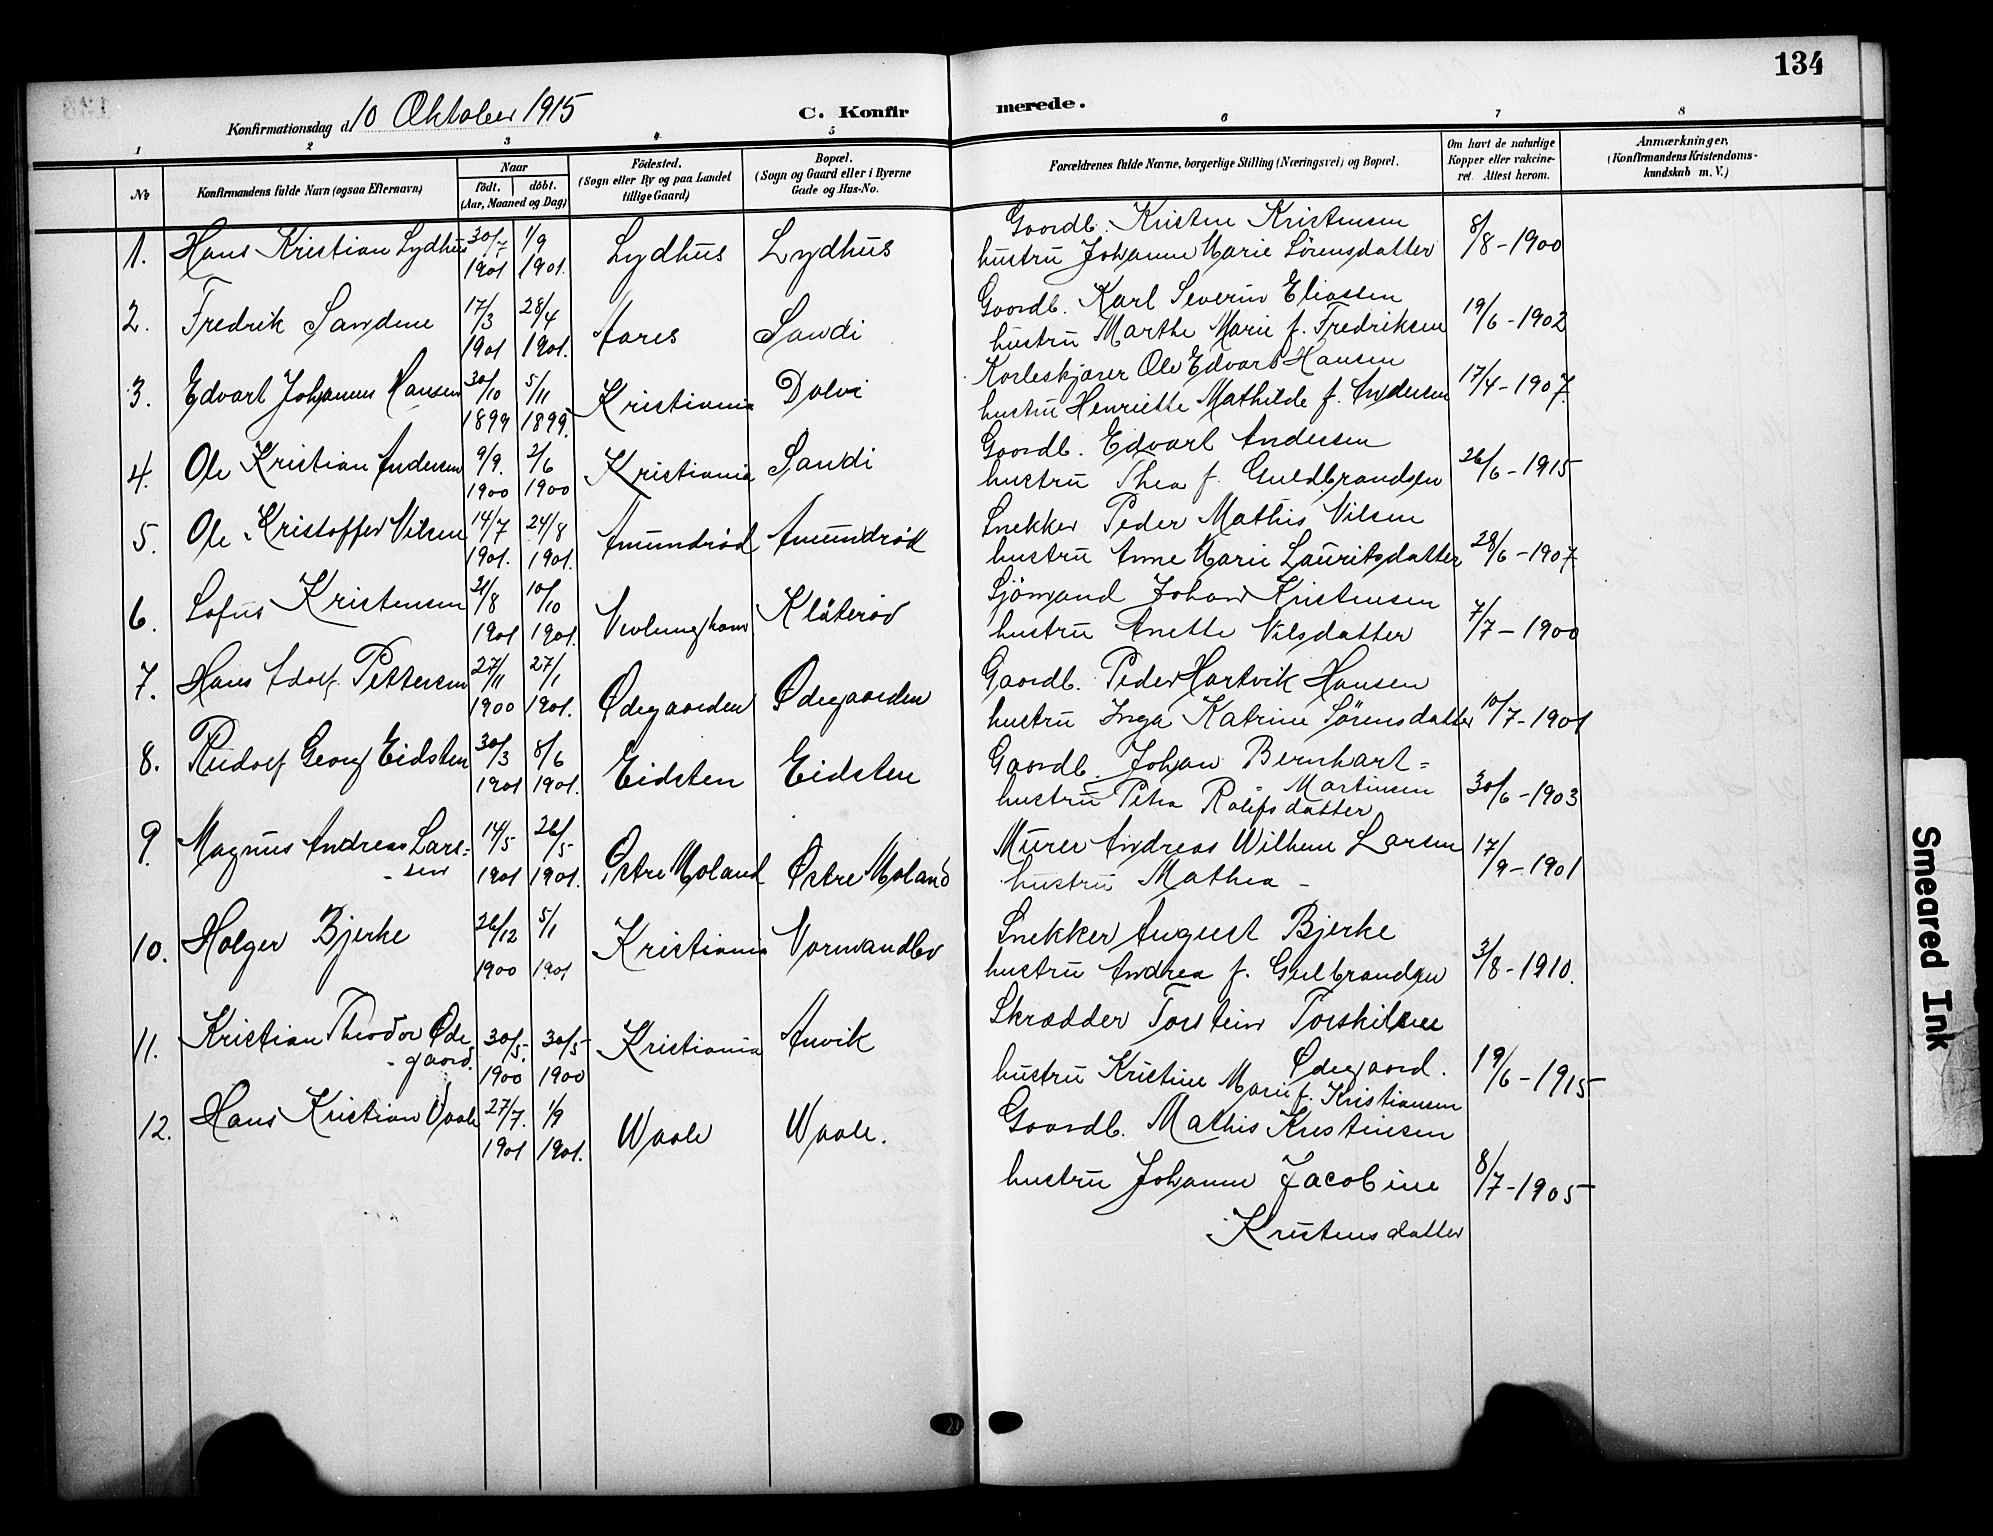 134
Konfirmationsdag d. 10 Oktober 1915
C. Konfirmerede.
1 2 3 4 5 6 7 8
No
Konfirmandens fulde Navn (ogsaa Efternavn)
Naar
födt. döbt.
(Aar, Maaned og Dag)
Födested.
(Sogn eller By og paa Landet
tillige Gaard)
Bopæl.
(Sogn og Gaard eller i Byerne
Gade og Hus-No.
Forældrenes fulde Navne, borgerlige Stilling (Næringsvei) og Bopæl.
Om havt de naturlige
Kopper eller vakcine-
ret. Attest herom.
Anmærkninger.
(Konfirmandens Kristendoms-
kundskab m. V.)
1. Hans Kristian Lydhus 30/7 1901 1/9 1901. Lydhus Lydhus Gaardb. Kristen Kristensen
hustru Johanne Marie Sørensdatter 8/8-1900
2. Fredrik Sandene 17/3 1901 28/4 1901. Aares Sandi Gaardb. Karl Severin Eliassen
hustru Marthe Marie f. Fredriksen 19/6-1902
3. Edvart Johannes Hansen 30/10 1899 5/11 1899. Kristiania Dolvi Ole Edvart Hansen
hustru Henriette Mathilde f. Andersen 17/4-1907.
4. Ole Kristian Andersen 9/9. 1900 2/6 1900 Kristiania Sandi Gaardb. Edvart Andersen
hustru Thea f. Guldbrandsen 26/6-1915
5. Ole Kristoffer Nilsen 14/7 1901. 24/8 1901. Amundrød Amundrød Snekker Peder Mathis Nilsen
hustru Anne Marie Lauritsdatter 28/6-1907
6. Sofus Kristensen 21/8 1901 10/10 1901. Nevlunghavn Kläterød Sjömand Johan Kristensen
hustru Anette Nilsdatter 7/7-1900
7. Hans Adolf Pettersen 27/11 1900 27/1 1901. Ødegaarden Ødegaarden Gaardb. Peder Hartvik Hansen
hustru Inga Katrine Sørensdatter 10/7-1901
8. Rudolf Georg Eidsten 30/3 1901 8/6 1901. Eidsten Eidsten Gaardb. Johan Bernhart=
- Martinsen
hustru Petra Rolifsdatter 30/6-1903
9. Magnus Andreas Lars=
-sen 14/5 1901 26/5 1901. Østre Moland Østre Moland Murer Andreas Wilhem Larsen
hustru Mathea - 17/9-1901
10. Holger Bjerke 26/12 1900 5/1 1901 Kristiania Snekker August Bjerke
hustru Andrea f. Gulbrandsen 3/8-1910.
11. Kristian Theodor Øde
-gaard. 30/5. 1900 30/5 1900 Kristiania Anvik Skrædder Torstein Torskilsen
Ødegaard.
hustru Kristine Marie f. Kristiansen 19/6-1915
12. Hans Kristian Vaale 27/7. 1901 1/9 1901. Waale Waale. Gaardb. Mathis Kristensen
hustru Johanne Jacobine 8/7-1905
Kristensdatter
Smeared Ink